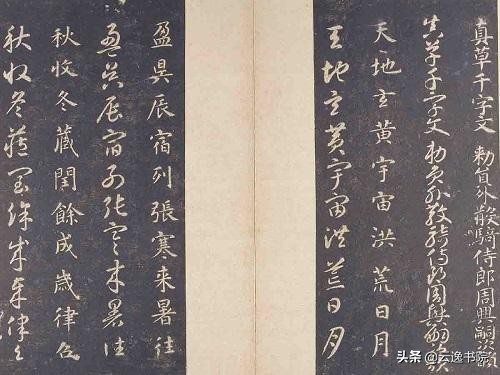 真草千字文 勅員外散騎侍郎周興嗣次韻
真草千字文 勅員外散騎侍郎周興嗣次韻
天地玄黃宇宙洪荒日月
天地玄黃宇宙洪荒日月
盈昃辰宿列張寒来暑往
盈昃辰宿列張寒来暑往
秋收冬藏閏餘成歲律呂
秋收冬藏閏餘成歲律呂
头条 @云逸书院